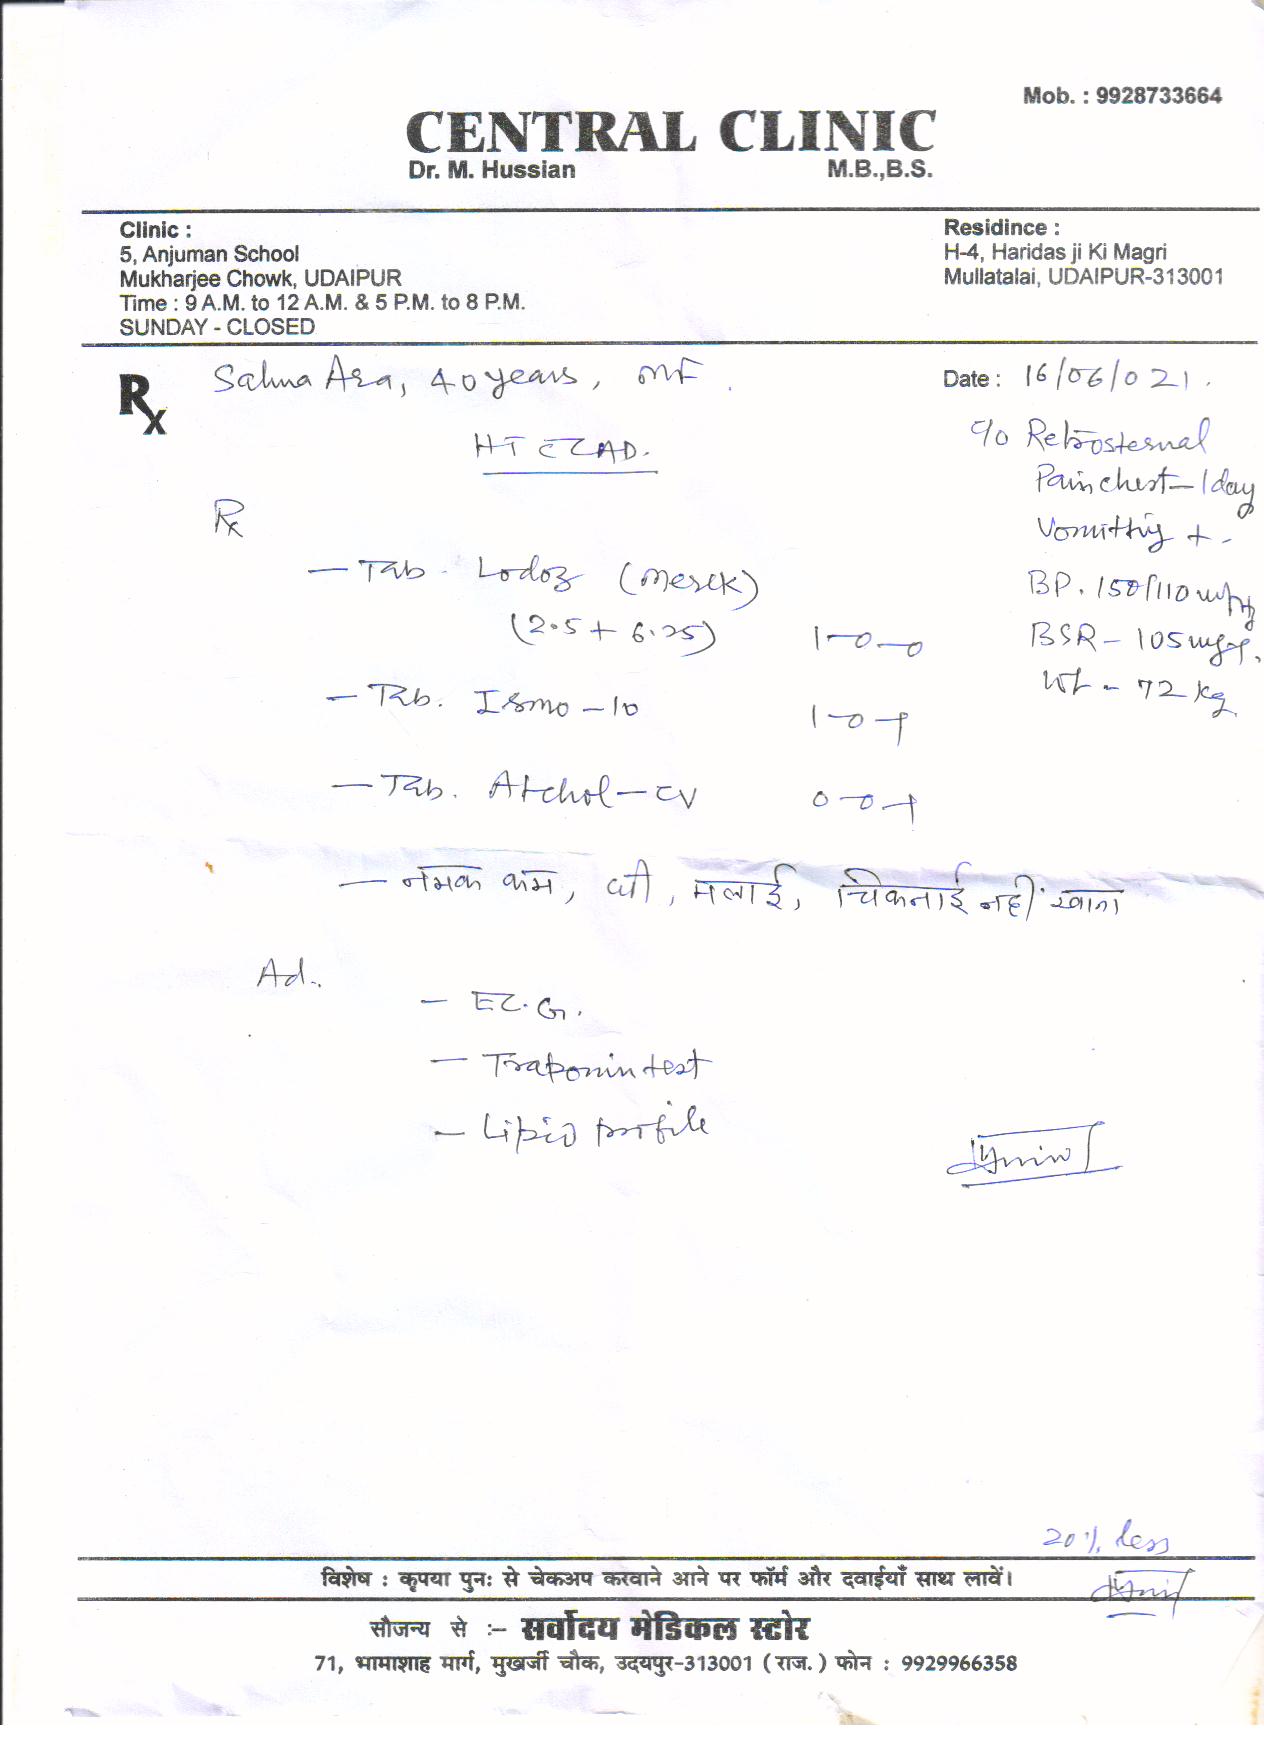 Mob. : 9928733664
CENTRAL CLINIC
Dr. M. Hussian M.B.,B.S.
Clinic :
5, Anjuman School
Mukharjee Chowk, UDAIPUR
Time : 9 A.M. to 12 A.M. & 5 P.M. to 8 P.M.
SUNDAY - CLOSED
Residince :
H-4, Haridas ji Ki Magri
Mullatalai, UDAIPUR-313001
Rx Salma Ara, 40 years, MF.
Date : 16/06/021.
HT C CAD.
c/o Retrosternal
Pain chest - 1 day
Vomitting + -
BP. 150/110 mmHg
BSR - 105 mg%.
Wt - 72 kg
Rx
- Tab. Lodoz (Merck)
(2.5 + 6.25) 1-0-0
- Tab. Ismo - 10 1-0-1
- Tab. Atchol - CV 0-0-1
- नमक कम, घी, मलाई, चिकनाई नहीं खाना
Ad.
- E.C.G.
- Troponin test
- Lipid profile
20% less
विशेष : कृपया पुनः से चेकअप करवाने आने पर फॉर्म और दवाईयाँ साथ लावें।
सौजन्य से :- सर्वोदय मेडिकल स्टोर
71, भामाशाह मार्ग, मुखर्जी चौक, उदयपुर-313001 (राज.) फोन : 9929966358